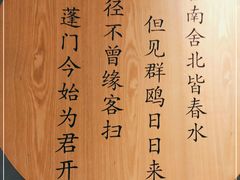 南舍北皆春水
但见群鸥日日来
径不曾缘客扫
蓬门今始为君开